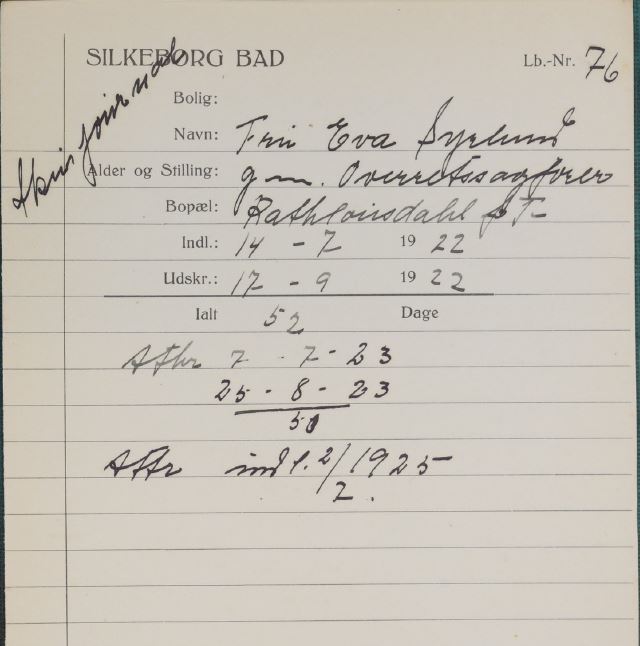 SILKEBORG BAD
Lb.-Nr. 76
journal
Bolig:
Navn: Fru Eva Dyrlund
Alder og Stilling: g m. Overretssagfører
Bopæl: Rathlousdahl
Indl.: 14 - 7 1922
Udskr.: 17 - 9 1922
Ialt 52 Dage
Atter 7 - 7 - 23
25 - 8 - 23
50
Atter indl. 2/7. 1925